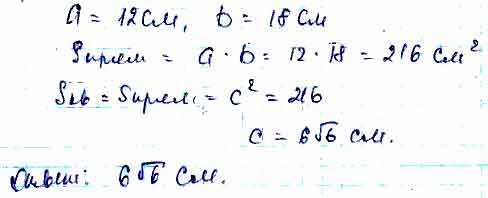 a = 12 см, b = 18 см
Sпрям = a · b = 12 · 18 = 216 см²
Sкв = Sпрям. = c² = 216
c = 6√6 см.
Ответ: 6√6 см.